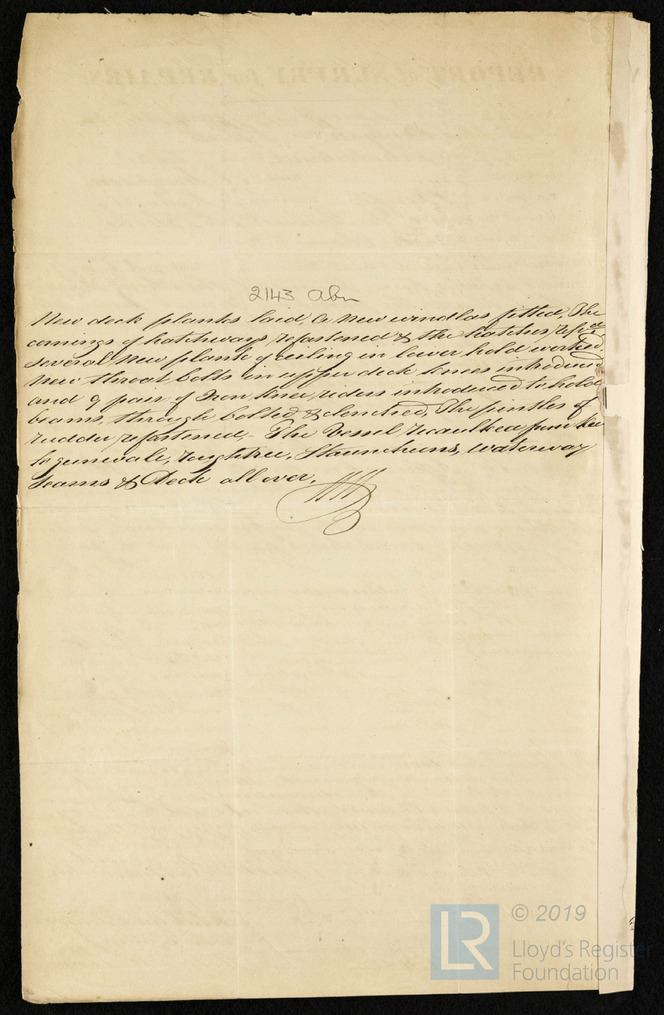 2143 Abn
New deck planks laid, a New windlas fitted, The
comings of hatchways refastened & the hatches repd
Several New plank of ceiling in lower hold worked
New throat bolts in upper deck knees introduced
and 9 pair of Iron knee riders introduced to hold
beams, through bolted & clenched, The pintles of
rudder refastened,- The Vessel recaulked from keel
to gunwale, roughtree, Staunchions, Waterway
Seams & Deck all over.
LR
© 2019
Lloyd's Register
Foundation